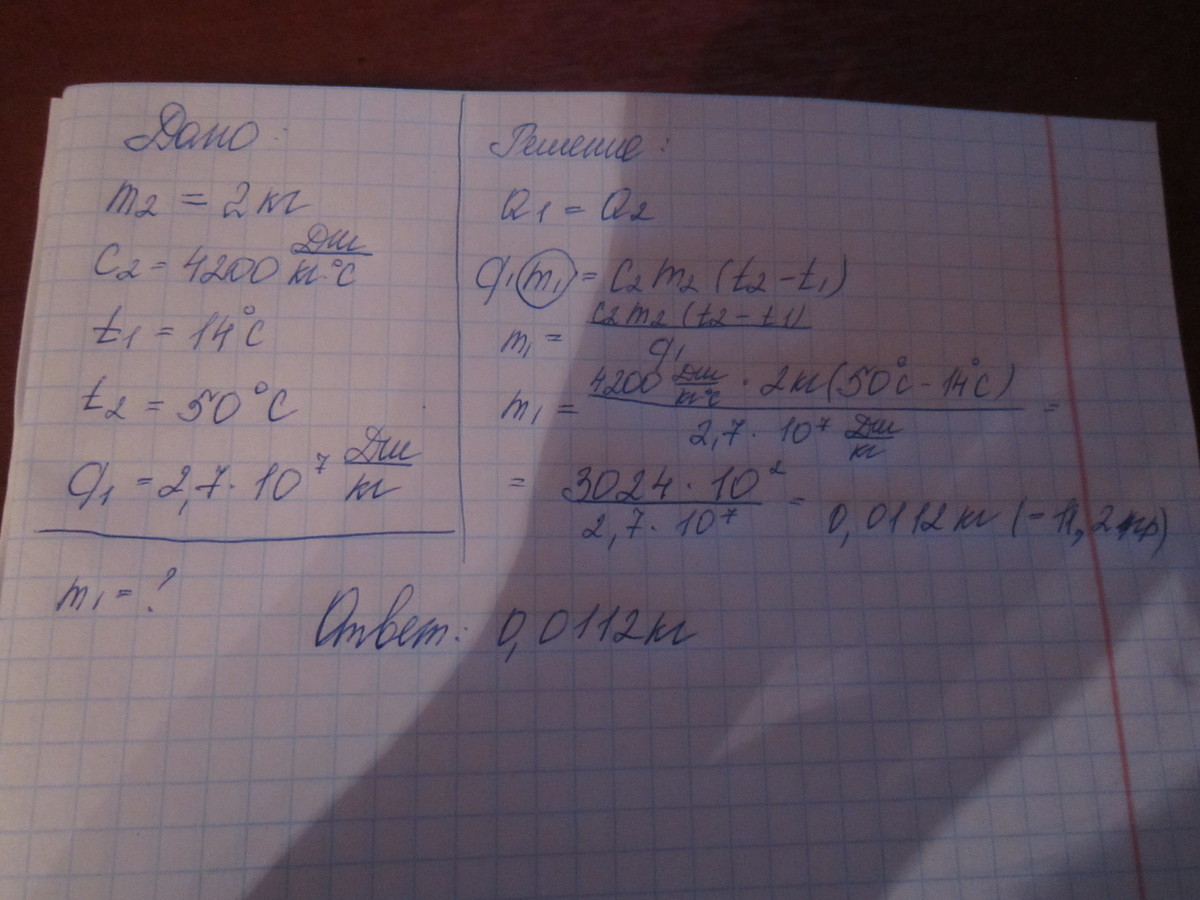 Дано:
m₂ = 2 кг
c₂ = 4200 Дж/кг·°C
t₁ = 14°C
t₂ = 50°C
q₁ = 2,7 · 10⁷ Дж/кг
m₁ = ?
Решение:
Q₁ = Q₂
q₁m₁ = c₂m₂(t₂-t₁)
m₁ = c₂m₂(t₂-t₁)/q₁
m₁ = 4200 Дж/кг°C · 2кг(50°C - 14°C) / 2,7 · 10⁷ Дж/кг =
= 3024 · 10² / 2,7 · 10⁷ = 0,0112 кг (= 11,2 гр)
Ответ: 0,0112 кг